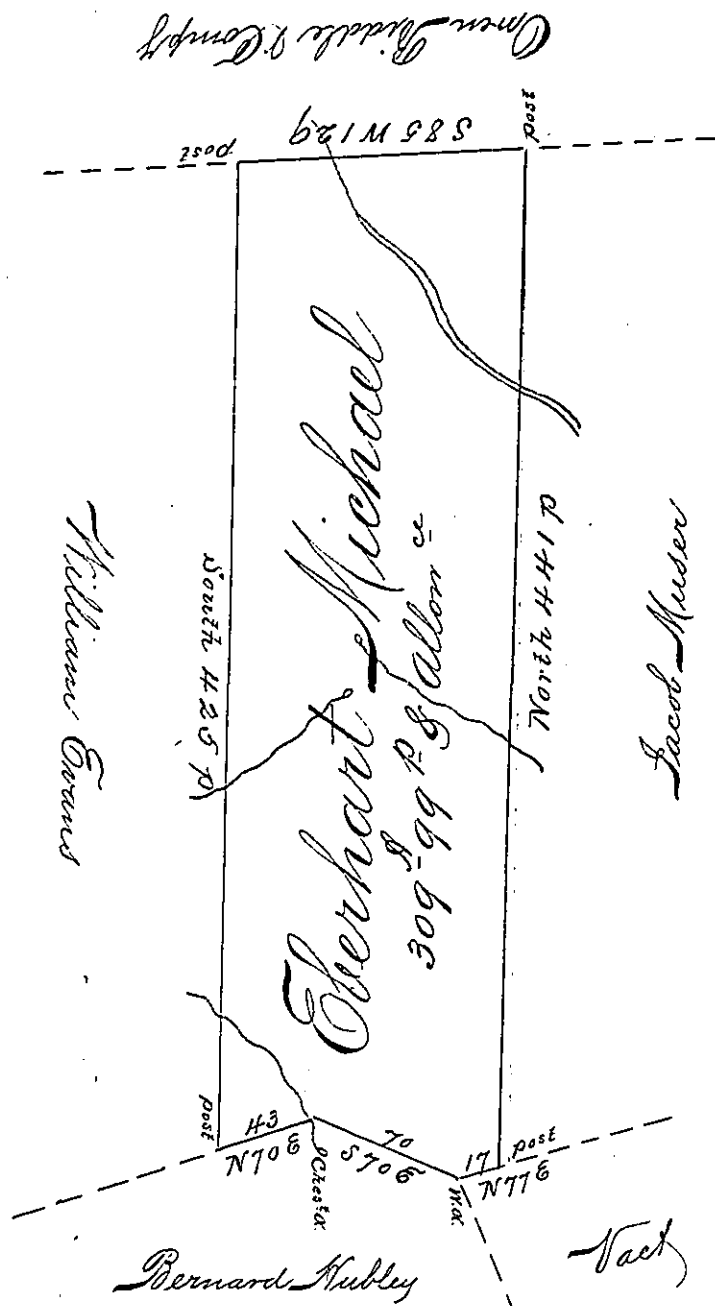 Owen Biddle & Compy
S85W129
post
post
William Evans
South 425 P
Eberhart Michael
309 A 99 P & allow ce
North 441 P
Jacob Muser
post
43
N70E
Chest. O.
70
S70E
W.O.
17
N77E
post
Bernard Hubley
Vact